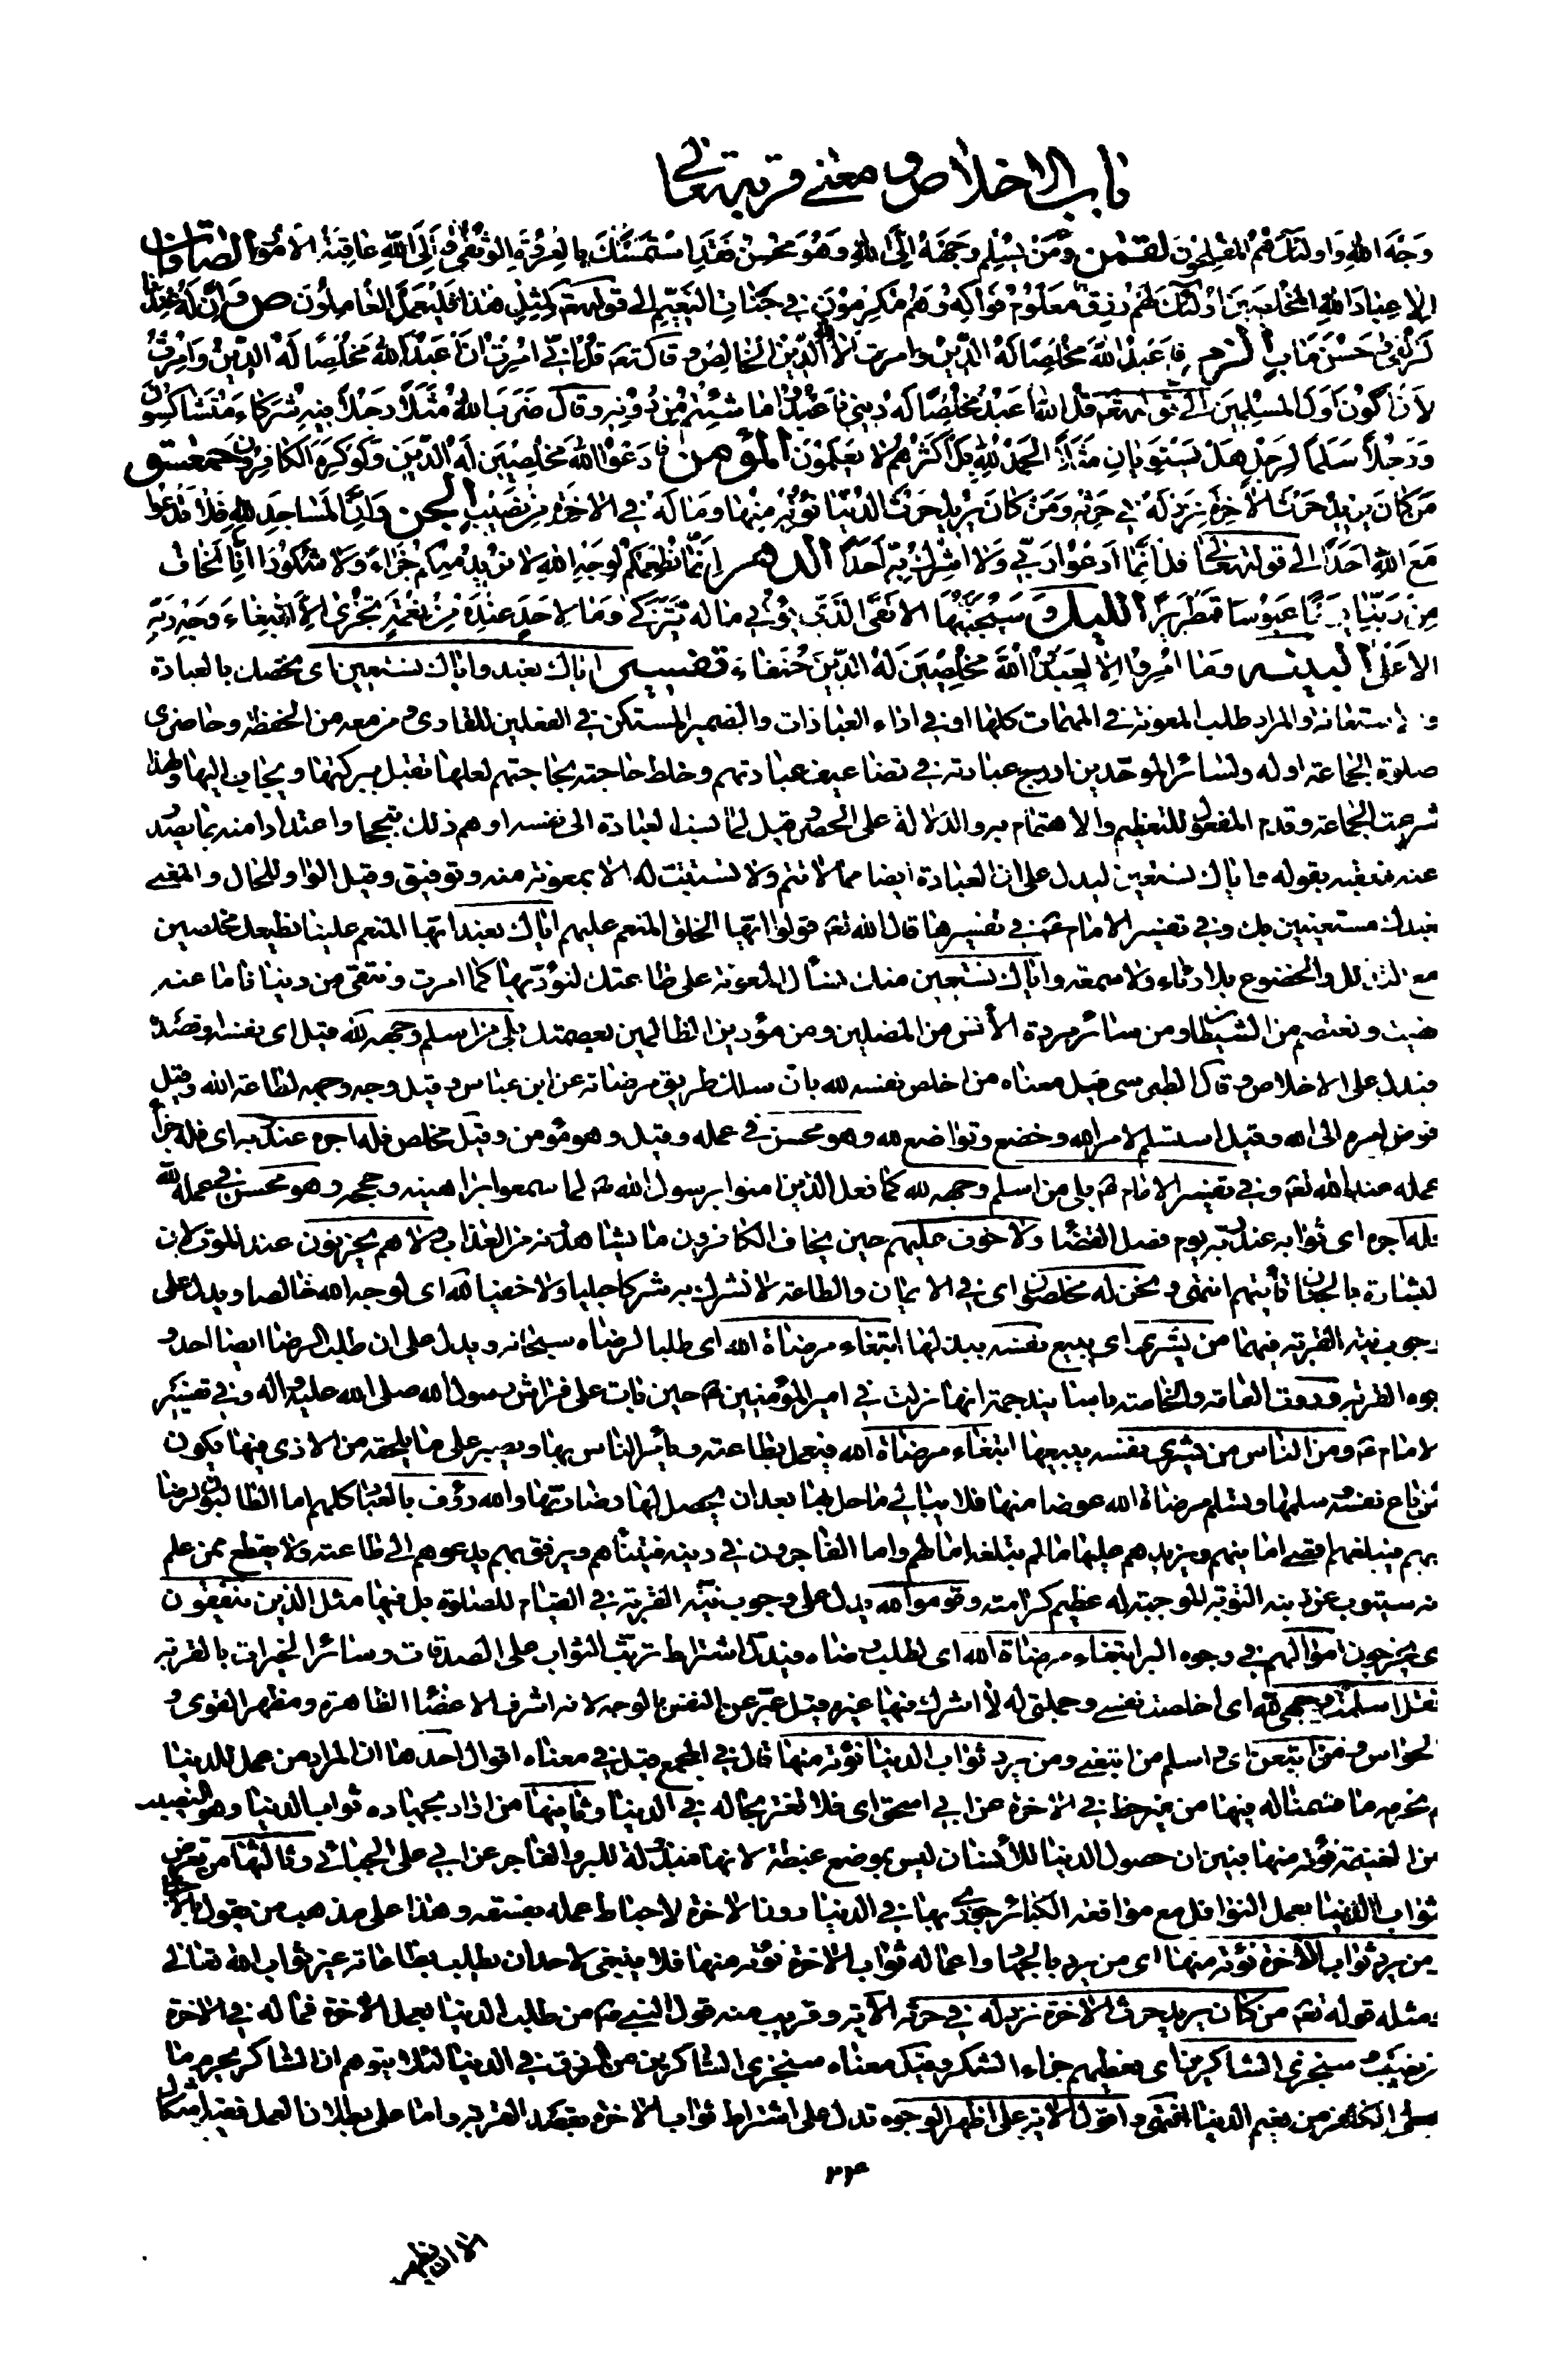 باب الاخلاص و معنى قربته تعالى
وَجْهَ اللهِ وَاولئِكَ هُمُ المُفلِحُونَ لقمٰن وَمَنْ يُسْلِم وَجهَهُ اِلَى اللهِ وَهُوَ مُحْسِنٌ فَقَدِ اسْتَمْسَكَ بِالعُرْوَةِ الوُثْقىٰ وَاِلَى اللهِ عَاقِبَةُ الاُمُورِ الصّافّات
اِلا عِبادَ اللهِ المُخْلَصِينَ اُولئِكَ لَهُمْ رِزقٌ مَعلُومٌ فَوَاكِهُ وَهُمْ مُكرَمُونَ فِي جَنّاتِ النَعِيمِ الى قوله تعم لِمِثلِ هٰذا فَليَعمَلِ العَامِلُونَ ص وَاِنَّ لَهُ عِندَنا
لَزُلفىٰ وَحُسْنَ مَآبٍ الزمر فَاعبُدِ اللهَ مُخلِصًا لَهُ الدّينَ الا لله الدّينُ الخالِصُ و قال تعم قُل اِنّي اُمِرتُ اَن اَعبُدَ اللهَ مُخلِصًا لَهُ الدّينَ وَاُمِرتُ
لِاَن اَكُونَ اَوّلَ المُسلِمينَ الى قوله تعم قُلِ اللهَ اَعبُدُ مُخلِصًا لَهُ دِيني فَاعبُدُوا ما شِئتُم مِن دُونِهِ وقال ضَرَبَ اللهُ مَثَلًا رَجُلًا فِيهِ شُرَكاءُ مُتَشاكِسُونَ
وَرَجُلًا سَلَمًا لِرَجُلٍ هَل يَستَوِيانِ مَثَلًا الحَمدُ لِلهِ بَل اَكثَرُهُم لا يَعلَمُونَ المؤمن فَادعُوا اللهَ مُخلِصينَ لَهُ الدّينَ وَلَو كَرِهَ الكافِرُونَ حمعسق
مَن كانَ يُريدُ حَرثَ الاخِرَةِ نَزِد لَهُ في حَرثِهِ وَمَن كانَ يُريدُ حَرثَ الدُنيا نُؤتِهِ مِنها وَما لَهُ فِي الاخِرَةِ مِن نَصيبٍ الجن وَاَنَّ المَساجِدَ لِلهِ فَلا تَدعُوا
مَعَ اللهِ اَحَدًا الى قوله تعالى قل اِنَّما اَدعُوا رَبّي وَلا اُشرِكُ بِهِ اَحَدًا الدهر اِنَّما نُطعِمُكُم لِوَجهِ اللهِ لا نُريدُ مِنكُم جَزاءً وَلا شُكُورًا اِنّا نَخافُ
مِن رَبِّنا يَومًا عَبُوسًا قَمطَريرًا الليل وَسَيُجَنَّبُهَا الاَتقَى الَّذي يُؤتي ما لَهُ يَتَزَكّى وَما لِاَحَدٍ عِندَهُ مِن نِعمَةٍ تُجزى اِلَّا ابتِغاءَ وَجهِ رَبِّهِ
الاَعلىٰ البينه وَما اُمِرُوا اِلّا لِيَعبُدُوا اللهَ مُخلِصينَ لَهُ الدّينَ حُنَفاءَ تفسيرـ اياك نعبد واياك نستعين اى نخصك بالعبادة
و الاستعانة والمراد طلب المعونة فى المهمات كلها او فى اداء العبادات والضمير المستكن فى الفعلين للقارى و من معه من الحفظة وحاضرى
صلوة الجماعة او له ولسائر الموحّدين ادرج عبادته فى تضاعيف عبادتهم وخلط حاجته بحاجتهم لعلها تقبل ببركتها ويجاب اليها ولهذا
شرعت الجماعة وقدم المفعول للتعظيم والاهتمام به والدلالة على الحصر وقيل لمّا نسب العبادة الى نفسه اوهم ذلك تبجحا واعتدادا منه بما يصدر
عنه فعقبه بقوله واياك نستعين ليدل على ان العبادة ايضا مما لا تتم ولا تستتب له الا بمعونة منه وتوفيق وقيل الواو للحال والمعنى
نعبدك مستعينين بك وفى تفسير الامام ع فى تفسيرها قال الله تعم قولوا ايّها الخلق المنعم عليهم اياك نعبد ايّها المنعم علينا نطيعك مخلصين
مع التذلل والخضوع بلا رئاء ولا سمعة واياك نستعين منك نسأل المعونة على طاعتك لنؤدّيها كما امرت ونتقى من دنيانا ما عنه
نهيت ونعتصم من الشيطان ومن سائر مردة الانس من المضلين ومن مؤذين الظالمين بعصمتك بلى من اسلم وجهه لله قيل اى نفسه او قصده
فيدل على الاخلاص وقال الطبرسى قيل معناه من اخلص نفسه لله بان سلك طريق مرضاته عن ابن عباس وقيل وجه وجهه لطاعة الله وقيل
فوض امره الى الله وقيل استسلم لامر الله وخضع وتواضع لله وهو محسن فى عمله وقيل وهو مؤمن وقيل مخلص فله اجره عند ربه اى فله جزاء
عمله عند الله تعم وفى تفسير الامام ع بلى من اسلم وجهه لله كما فعل الذين امنوا برسول الله ص لما سمعوا براهينه وحججه وهو محسن فى عمله لله
فله اجره اى ثوابه عند ربّه يوم فصل القضاء ولا خوف عليهم حين يخاف الكافرون ما يشاهدونه من العذاب ولا هم يحزنون عند الموت لان
البشارة بالجنان تأتيهم انتهى و نحن له مخلصون اى فى الايمان والطاعة لا نشرك به شركا جليا ولا خفيا لله اى لوجه الله خالصا ويدل على
وجوب نية القربة فيهما من يشرى اى يبيع نفسه ببذلها ابتغاء مرضاة الله اى طلبا لرضاه سبحانه ويدل على ان طلب الرضا ايضا احد و
جوه القربة وروت العامة والخاصة باسانيد جمة انها نزلت فى امير المؤمنين ع حين بات على فراش رسول الله صلى الله عليه واله وفى تفسير
الامام ع ومن الناس من يشرى نفسه يبيعها ابتغاء مرضاة الله فيعمل بطاعته ويأمر الناس بها ويصبر على ما يلحقه من الاذى فيها يكون
كمن باع نفسه وسلمها وتسلم مرضاة الله عوضا منها فلا يبالى ما حل بها بعد ان يحصل لها رضا ربّها والله رؤف بالعباد كلهم اما الطالبون لرضا
ربهم فيبلغهم اقصى امانيهم ويزيدهم عليها ما لم يبلغه امالهم واما الفاجرون فى دينه فيتأناهم ويرفق بهم يدعوهم الى طاعته ولا يقطع ممن علم
انه سيتوب عن ذنبه التوبة الموجبة له عظيم كرامته وقوموا لله يدل على وجوب نيّة القربة فى القيام للصلوة بل فيها مثل الذين ينفقون
اى يخرجون اموالهم فى وجوه البر ابتغاء مرضاة الله اى لطلب رضاه فيدل اشتراط ترتّب الثواب على الصدقات وسائر الخيرات بالقربة
فقل اسلمت وجهى لله اى اخلصت نفسى وجملتى له لا اشرك فيها غيره قيل عبّر عن النفس بالوجه لانه اشرف الاعضاء الظاهرة ومظهر القوى و
الحواس و من اتبعن اى و اسلم من اتبعنى ومن يرد ثواب الدنيا نؤته منها قال فى المجمع قيل فى معناه اقوال احدها ان المراد من عمل للدنيا
لم نحرمه ما قسمنا له فيها من غير حظ فى الاخرة عن ابى اسحق اى فلا تغتر بحاله فى الدنيا وثانيها من اراد بجهاده ثواب الدنيا وهو النصيب
من الغنيمة نؤته منها فبيّن ان حصول الدنيا للانسان ليس بموضع غبطة لانها مبذولة للبر والفاجر عن ابى على الجبائى وثالثها من تعرض
ثواب الدنيا بعمل النوافل مع مواقعة الكبائر جوزى بها فى الدنيا دون الاخرة لاحباط عمله بفسقه وهذا على مذهب من يقول بالاحباط
ومن يرد ثواب الاخرة نؤته منها اى من يرد بالجهاد واعماله ثواب الاخرة نؤته منها فلا ينبغى لاحد ان يطلب بطاعاته غير ثواب الله تعالى
ومثله قوله تعم من كان يريد حرث الاخرة نزد له فى حرثه الآية وقريب منه قول النبى ص من طلب الدنيا بعمل الاخرة فما له فى الاخرة
من نصيب وسنجزى الشاكرين اى نعطيهم جزاء الشكر وقيل معناه سنجزى الشاكرين من الرزق فى الدنيا لئلا يتوهم ان الشاكر يحرم ما
يعطى الكافر من نعيم الدنيا انتهى و اقول الاية على اظهر الوجوه تدل على اشتراط ثواب الاخرة بقصد القربة واما على بطلان العمل ففيه اشكال
٢٢۴
الا ان يظهر